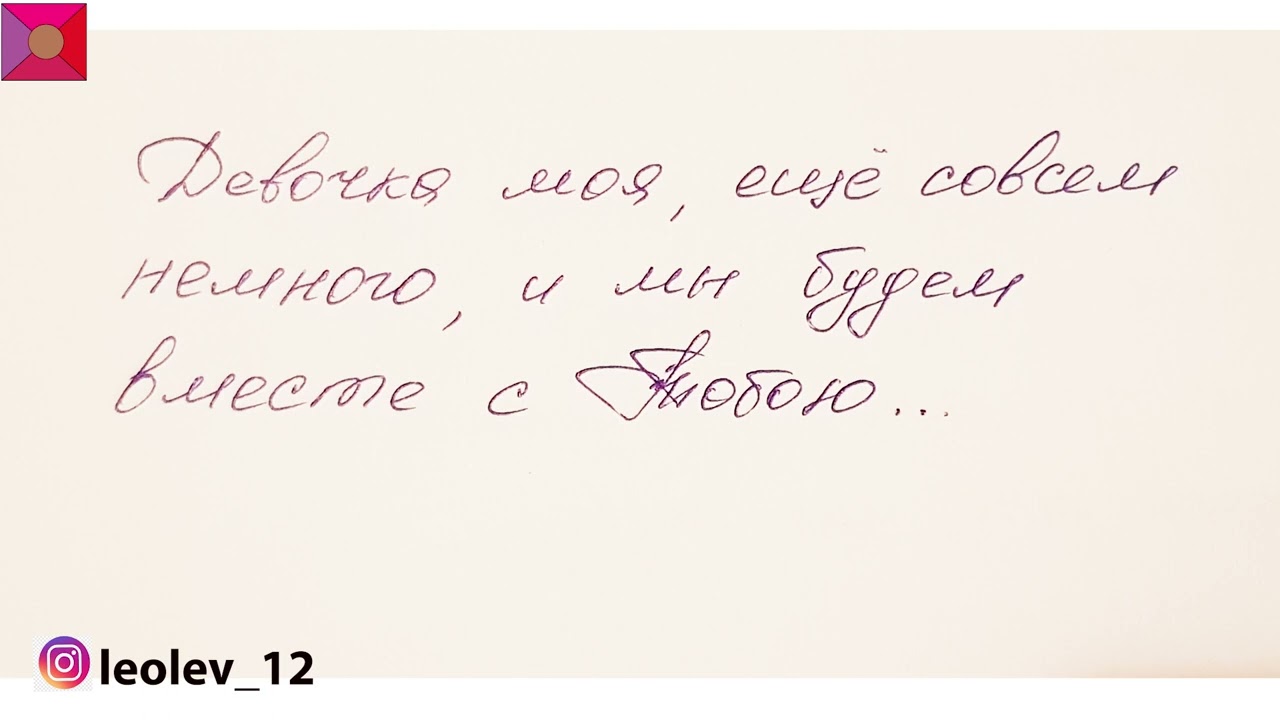 Девочка моя, ещё совсем
немного, и мы будем
вместе с Тобою...
leolev_12